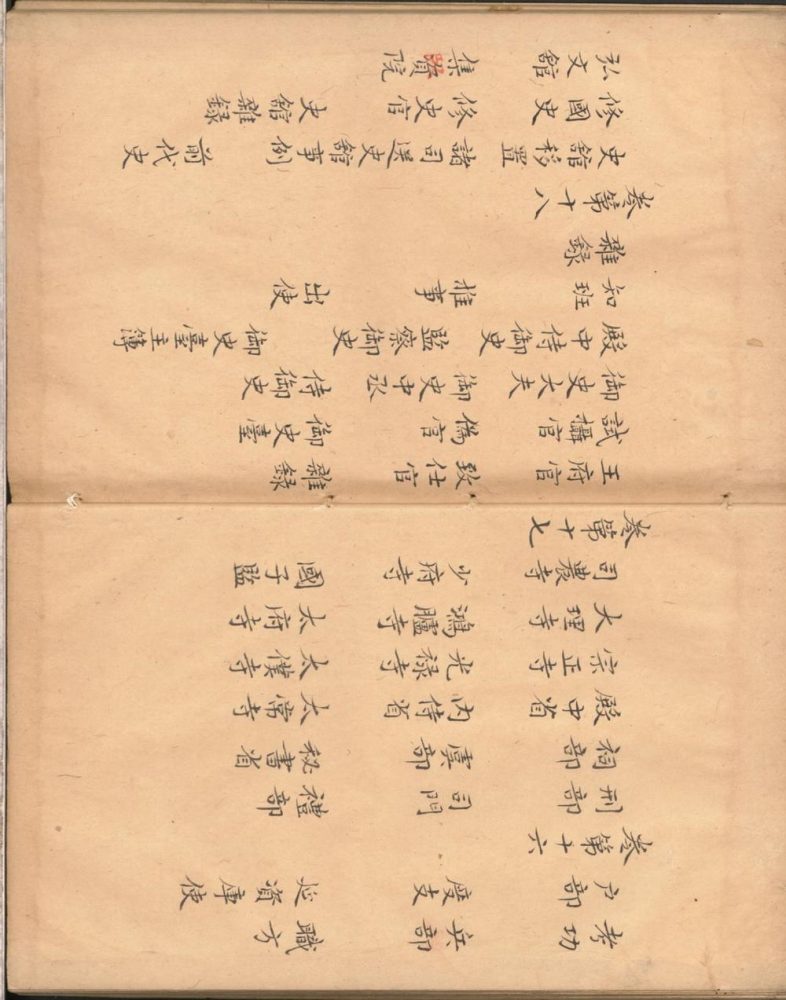 考功 兵部 職方
戶部 度支 延資庫使
卷第十六
刑部 司門 禮部
祠部 虞部 秘書省
殿中省 內侍省 太常寺
宗正寺 光祿寺 太僕寺
大理寺 鴻臚寺 太府寺
司農寺 少府寺 國子監
卷第十七
王府官 致仕官 雜錄
試攝官 偽官 御史臺
御史大夫 御史中丞 侍御史
殿中侍御史 監察御史 御史臺主簿
知班 推事 出使
雜錄
卷第十八
史館移置 諸司送史館事例 前代史
修國史 修史官 史館雜錄
弘文館 集賢院